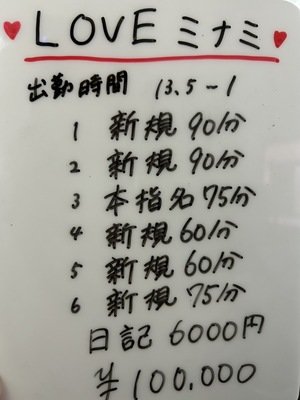 ♥LOVEミナミ♥
出勤時間 13.5-1
1 新規 90分
2 新規 90分
3 本指名 75分
4 新規 60分
5 新規 60分
6 新規 75分
日記 6000円
¥100,000